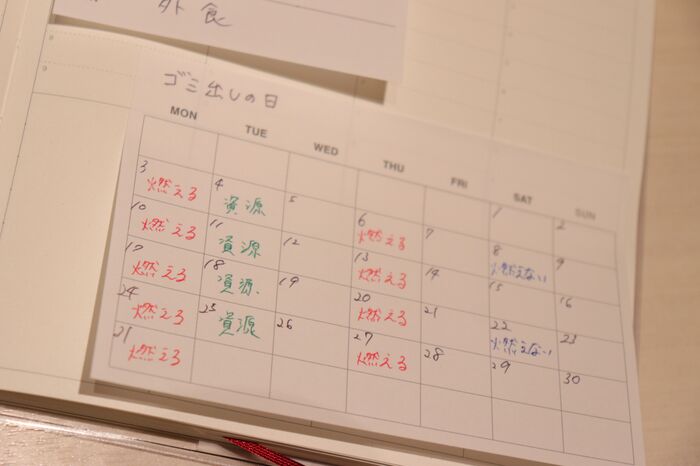 外食
ゴミ出しの日
MON TUE WED THU FRI SAT SUN
1 2
3 4 5 6 7 8 9
燃える 資源 燃える 燃えない
10 11 12 13 14 15 16
燃える 資源 燃える
17 18 19 20 21 22 23
燃える 資源 燃える 燃えない
24 25 26 27 28 29 30
燃える 資源 燃える
31
燃える